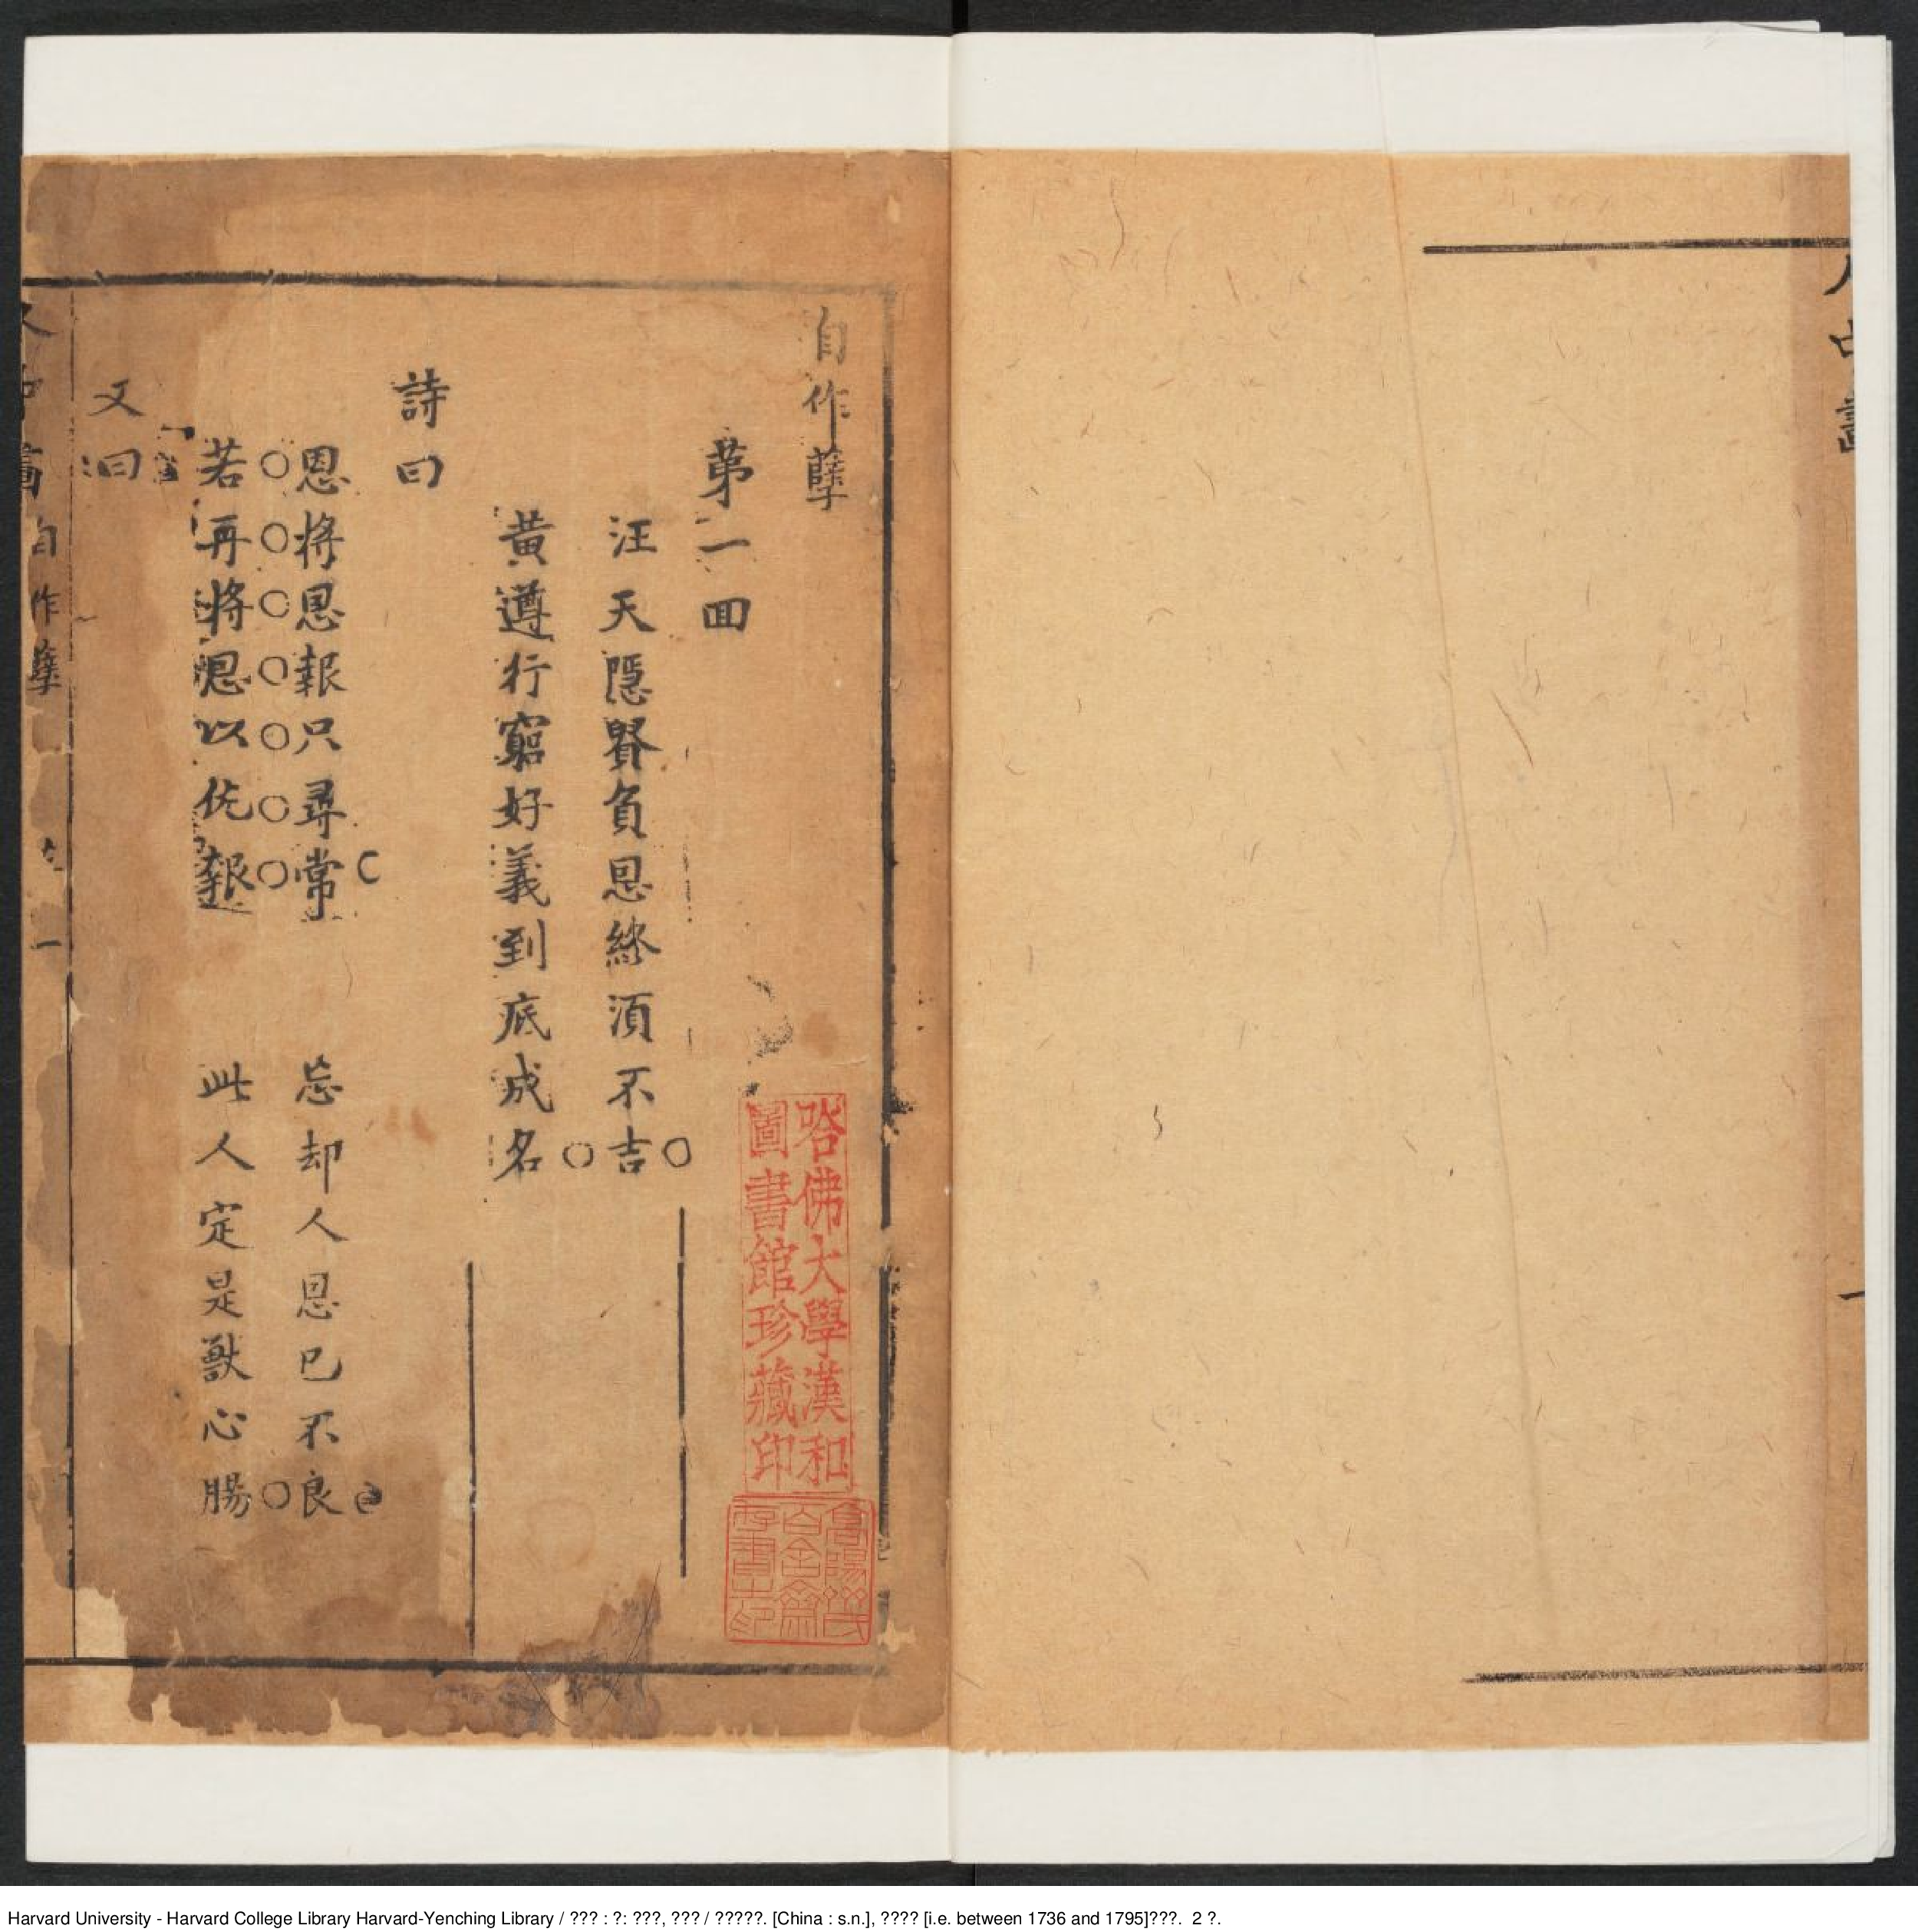 自作孽
第一回
汪天隱賢負恩終須不吉
黃遵行窮好義到底成名
詩曰
恩將恩報只尋常　忘却人恩已不良
若再將恩以仇報　此人定是獸心腸
又曰
自作孽
一
哈佛大學漢和
圖書館珍藏印
高陽
百舍齋
存書之印
一
Harvard University - Harvard College Library Harvard-Yenching Library / ??? : ?: ???, ??? / ?????. [China : s.n.], ???? [i.e. between 1736 and 1795]???.  2 ?.